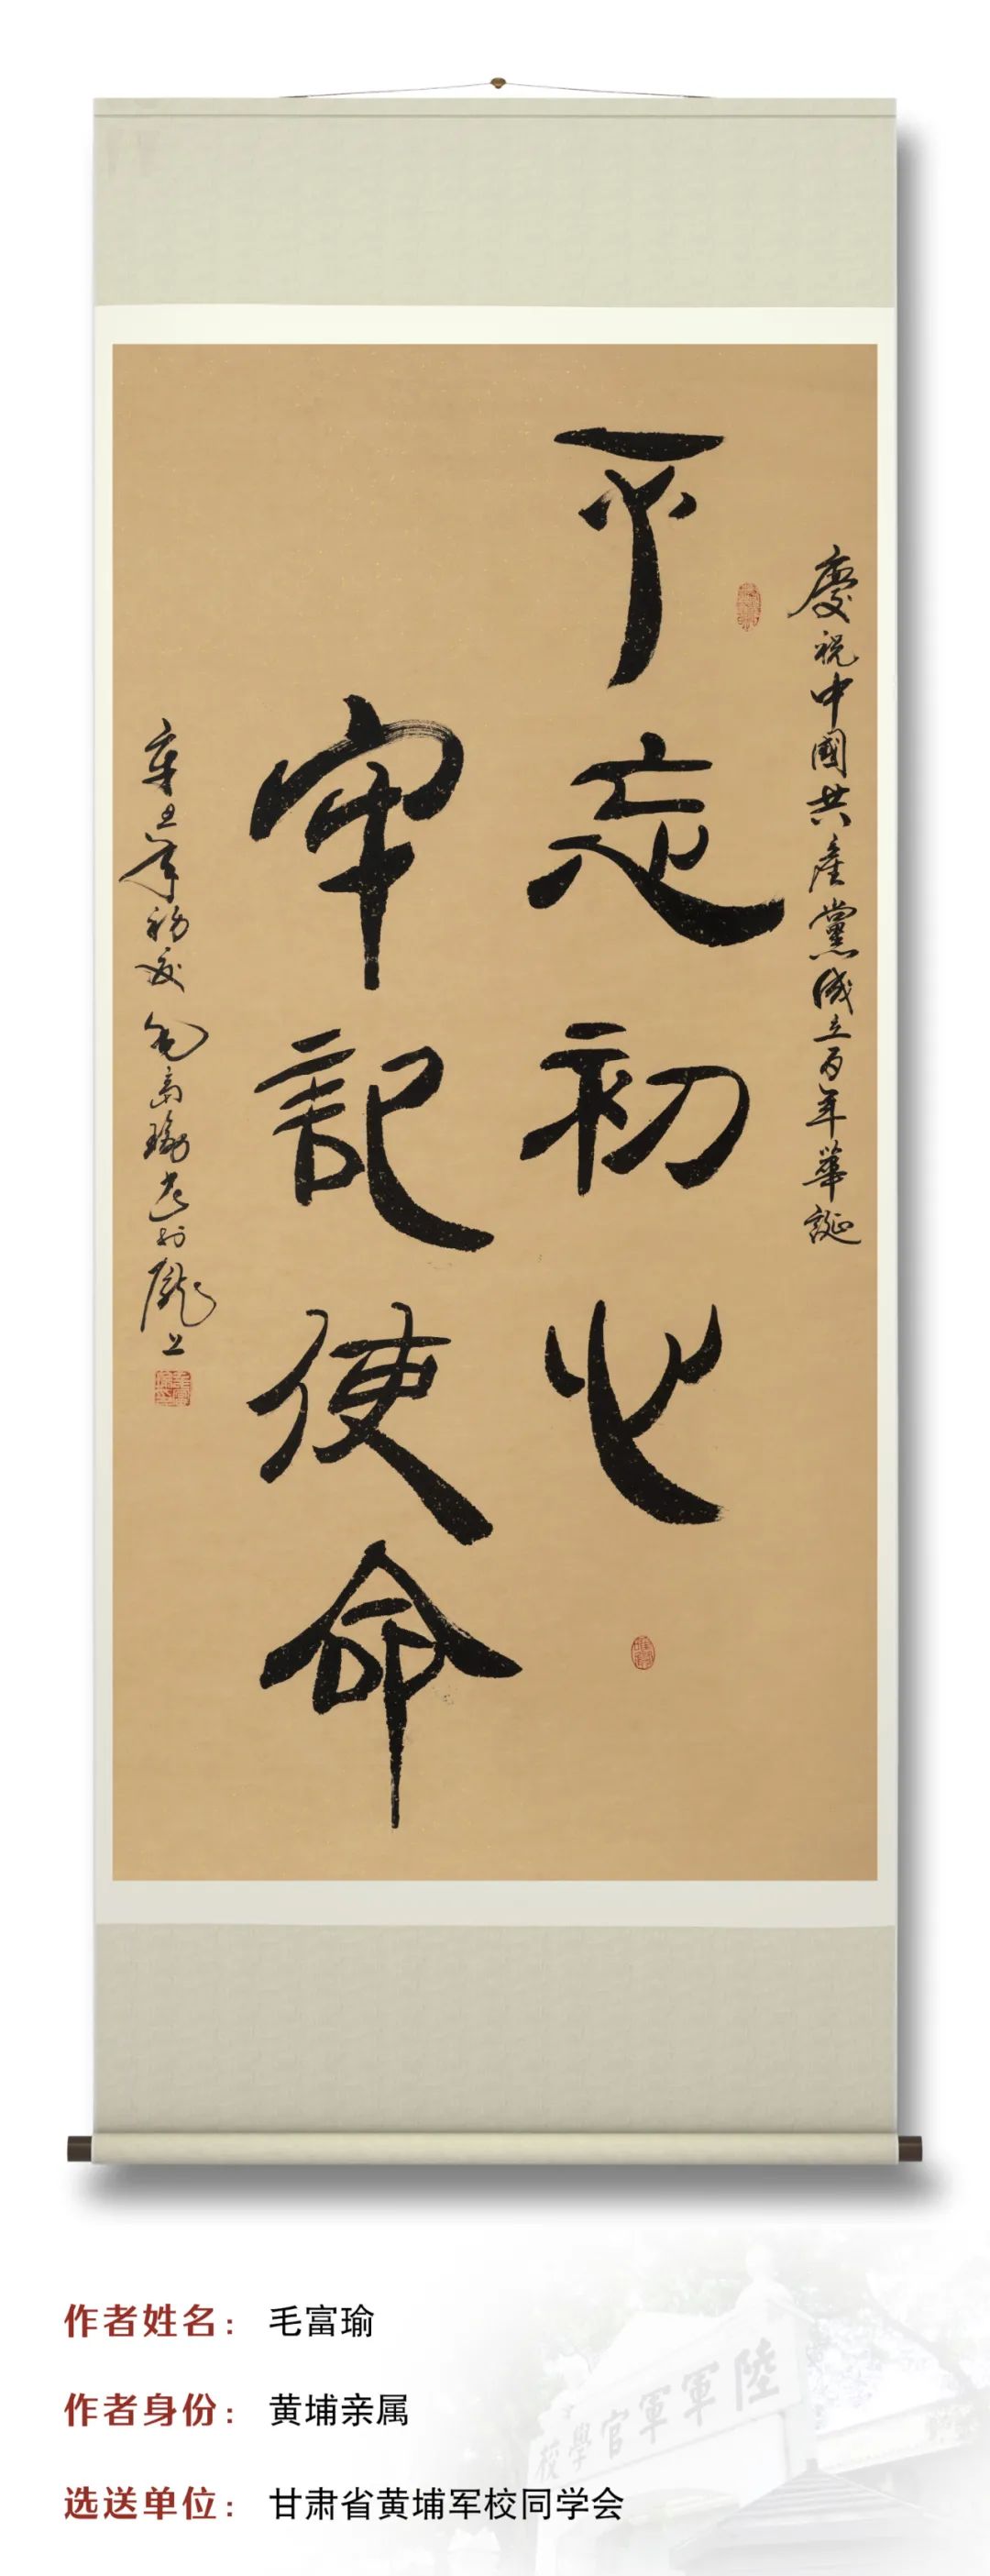 慶祝中國共產黨成立百年華誕
不忘初心
牢記使命
辛丑年初夏毛富瑜書於隴上
作者姓名：毛富瑜
作者身份：黄埔亲属
选送单位：甘肃省黄埔军校同学会
陸軍軍官學校